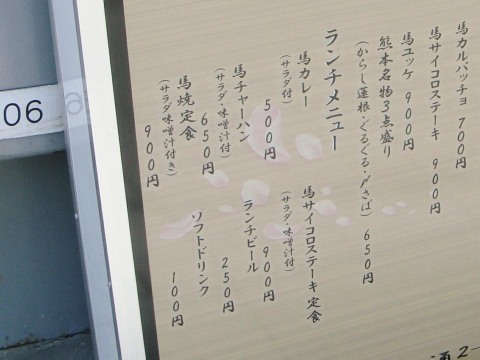 馬カルパッチョ 700円
馬サイコロステーキ 900円
馬ユッケ 900円
熊本名物3点盛り
(からし蓮根・ぐるぐる・〆さば) 650円
ランチメニュー
馬カレー
(サラダ付) 500円
馬チャーハン
(サラダ・味噌汁付) 650円
馬焼定食
(サラダ・味噌汁付き) 900円
馬サイコロステーキ定食
(サラダ・味噌汁付) 900円
ランチビール 250円
ソフトドリンク 100円
06